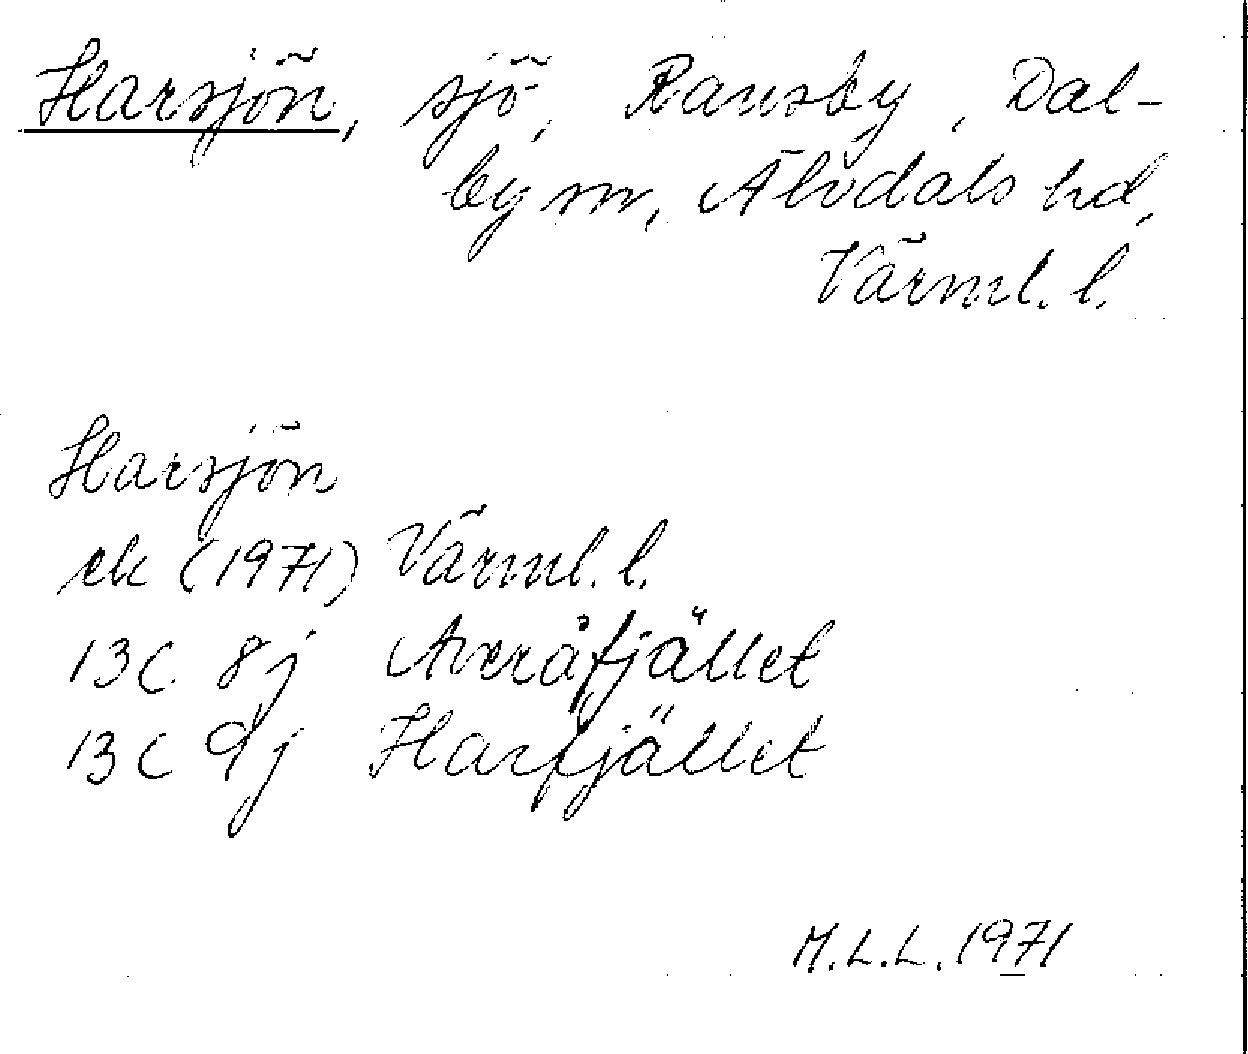 Harsjön, sjö, Ransby, Dal-
by sn, Älvdals hd,
Värml. l.
Harsjön
ek (1971) Värml. l.
13C 8j Averåfjället
13C 9j Harfjället
M.L.L. 1971